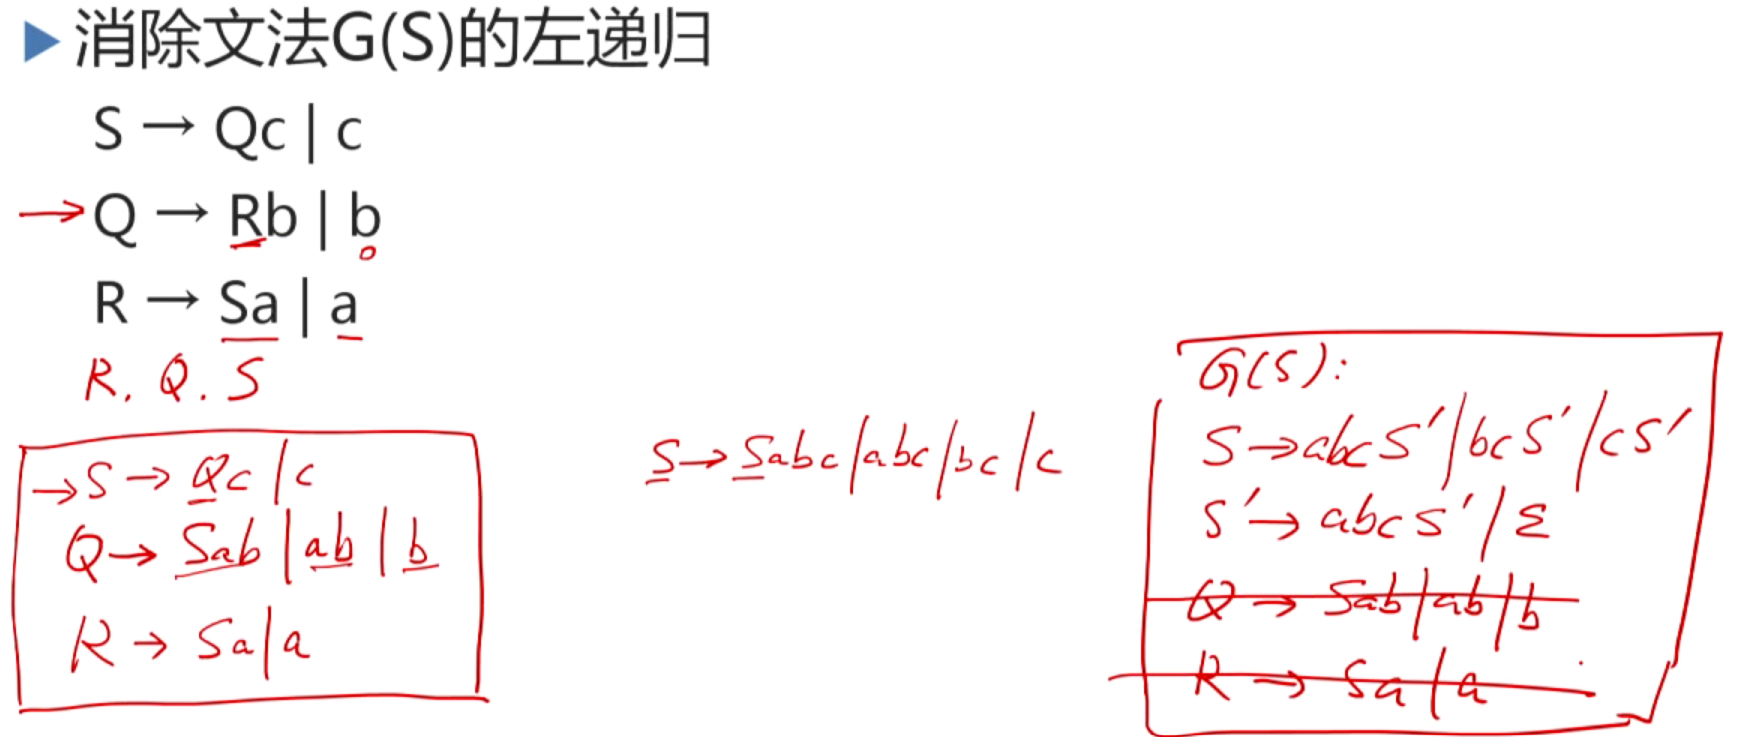 消除文法G(S)的左递归
S → Qc | c
Q → Rb | b
R → Sa | a
R. Q. S
S → Qc | c
Q → Sab | ab | b
R → Sa | a
S → Sabc | abc | bc | c
G(S):
S → abcS' | bcS' | cS'
S' → abcS' | ε
Q → Sab | ab | b
R → Sa | a